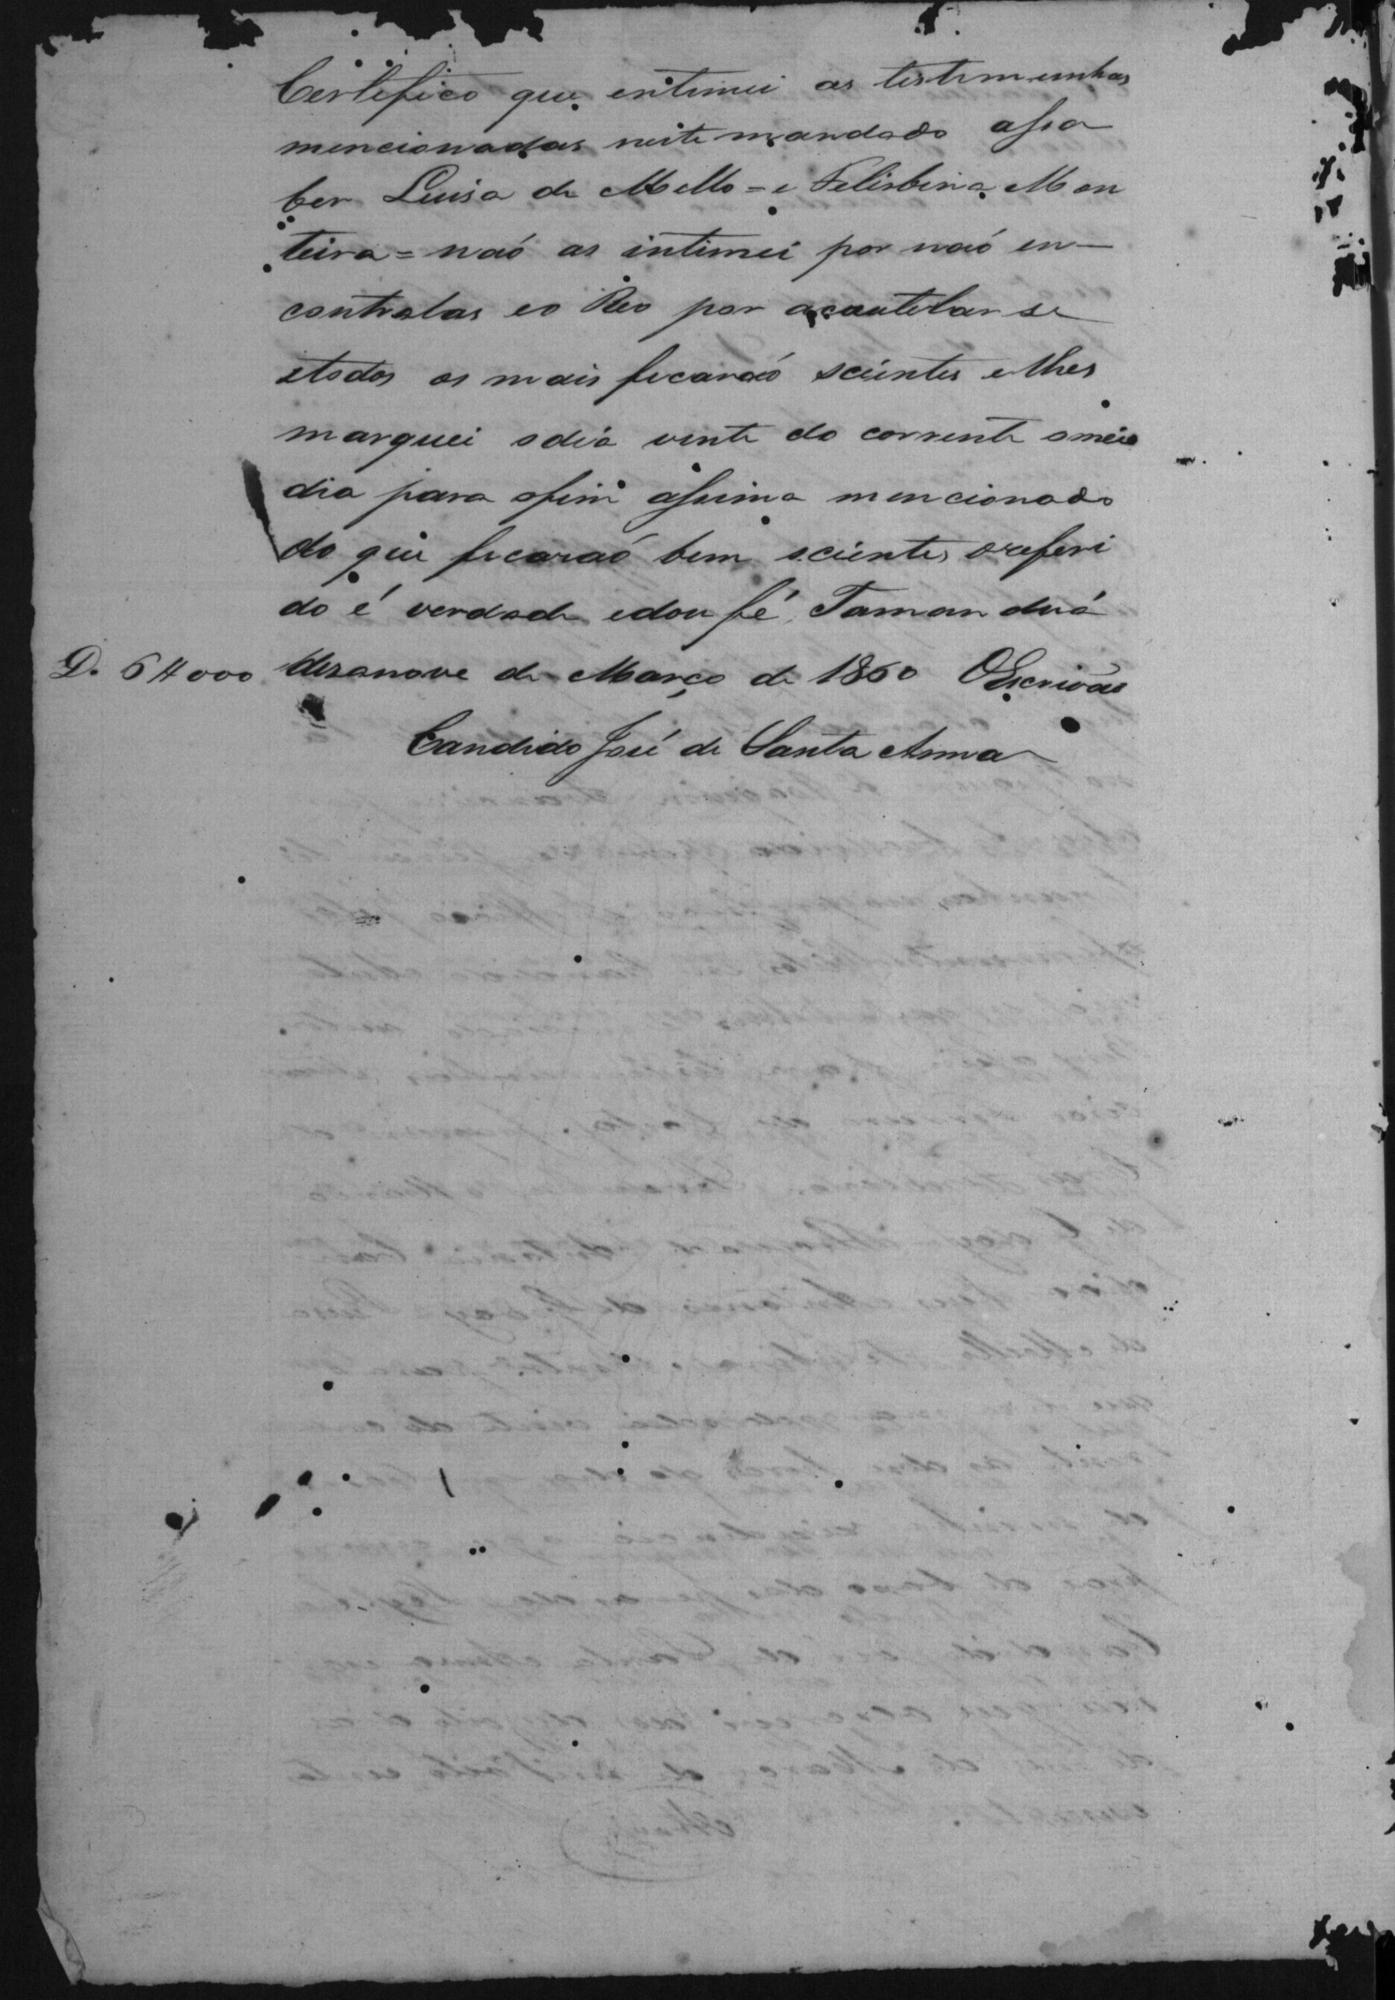 Certefico que entimei as testimunhas
mencionadas neste mandado assa
ber Luisa de Mello = e Felisbina Mon
teira = naó as intimei por naó en-
contralas eo Reo por acautelar se
etodos os mais ficaraó scientes e lhes
marquei odia vinte do corrente omeio
dia para ofim assima mencionado
do que ficaraó bem scientes oreferi
do é verdade edou fé, Tamanduá
D. 6#000 desanove de Março de 1860 OEscrivão
Candido José de Santa Anna